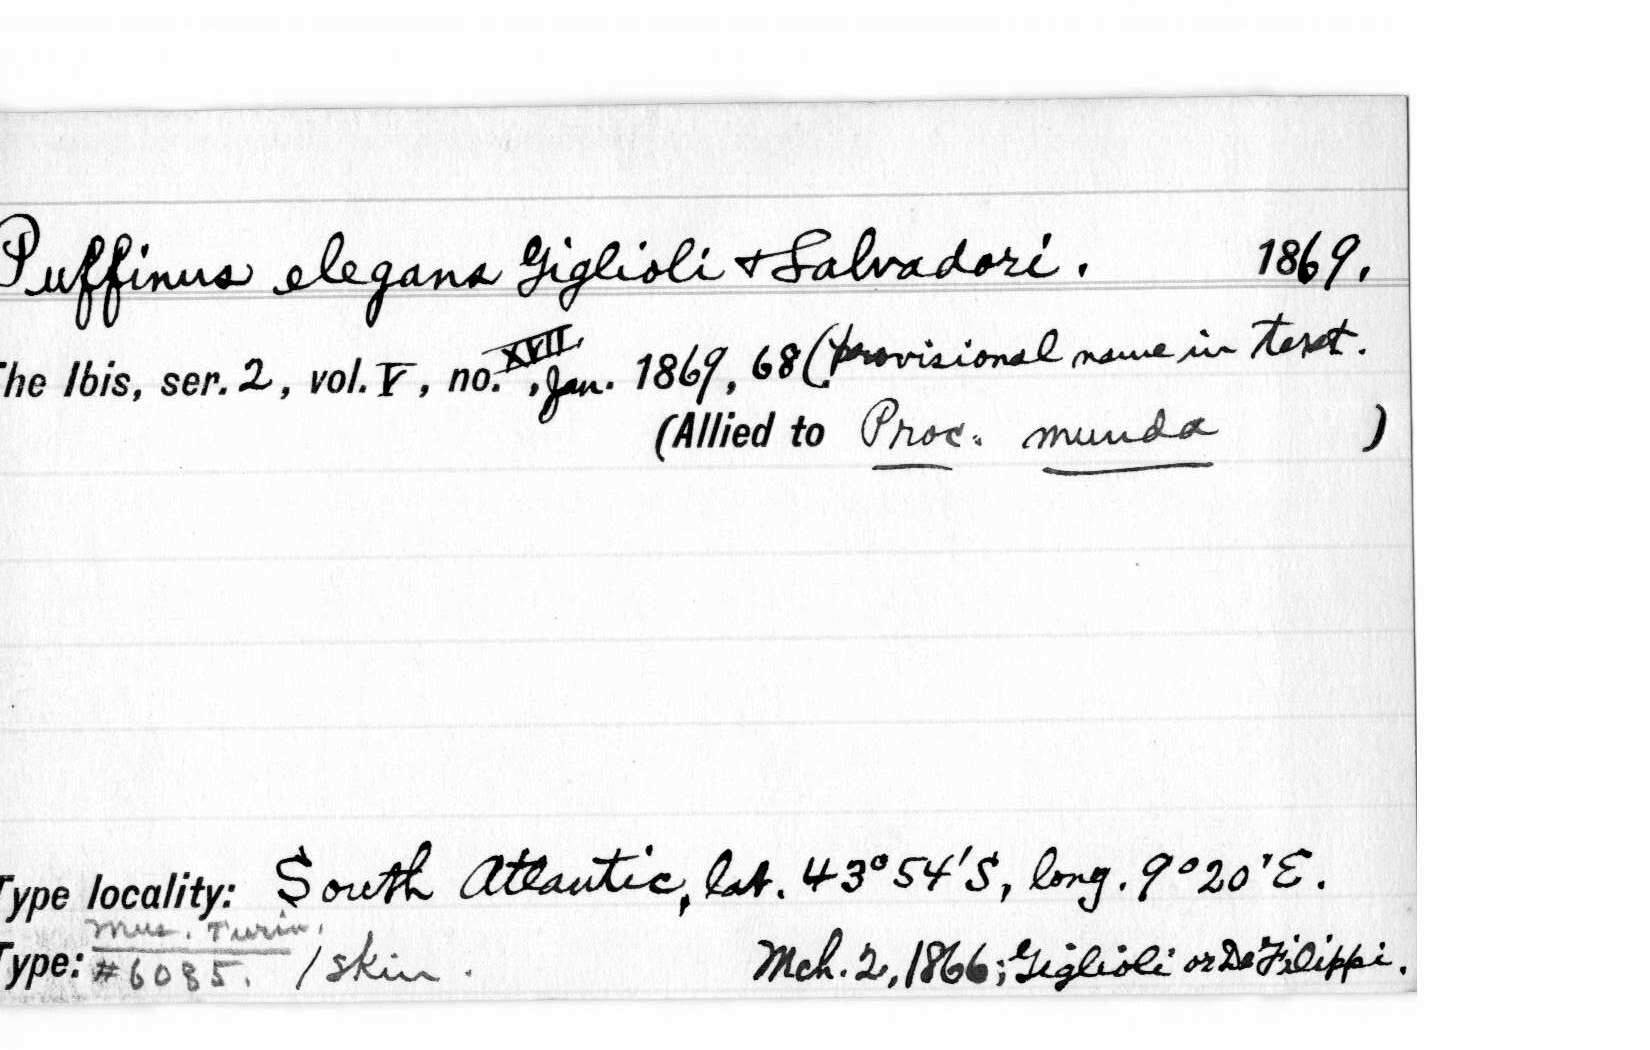 Puffinus elegans Giglioli & Salvadori. 1869.
The Ibis, ser. 2, vol. V, no. XVII, Jan. 1869, 68 (provisional name in text.
(Allied to Proc. munda )
Type locality: South Atlantic, lat. 43°54'S, long. 9°20'E.
Mus. Turin.
Type: #6085. 1 skin. Mch. 2, 1866; Giglioli or De Filippi.